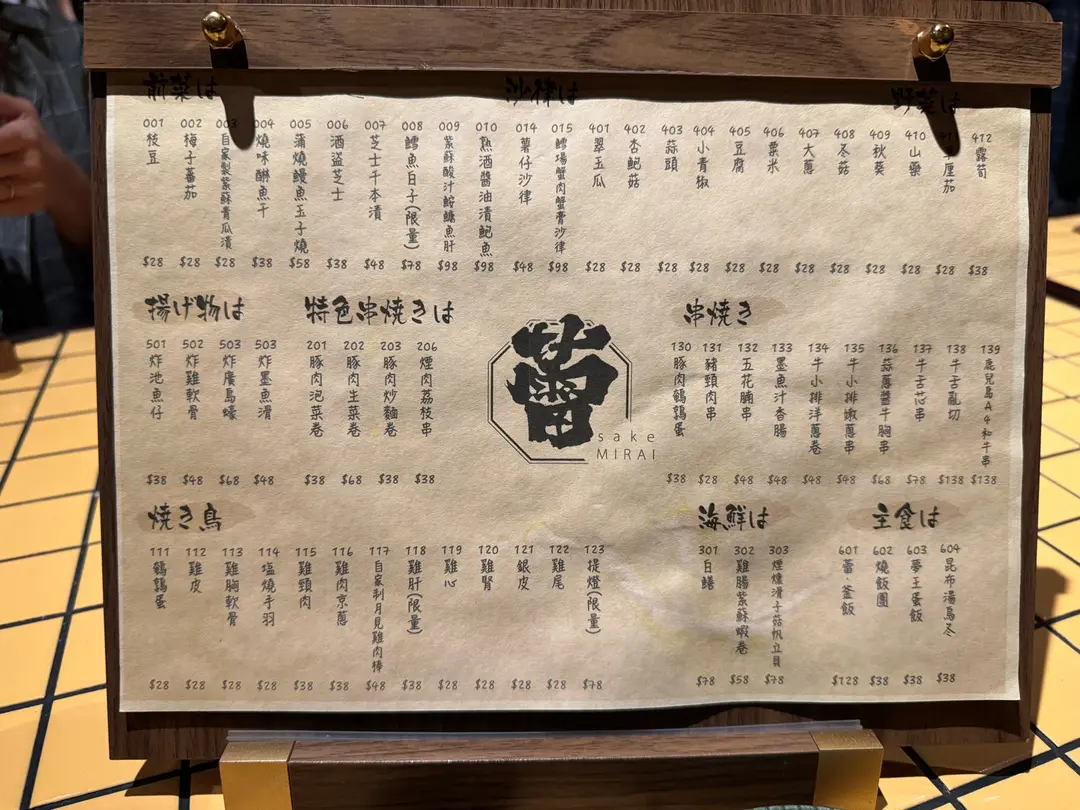 前菜は
001 枝豆 $28
002 梅子蕃茄 $28
003 自家製紫蘇青瓜漬 $28
004 燒味醂魚干 $38
005 蒲燒鰻魚玉子燒 $58
006 酒盜芝士 $38
007 芝士千本漬 $48
008 鱈魚白子(限量) $78
009 紫蘇酸汁鮟鱇魚肝 $98
010 熟酒醬油漬鮑魚 $98
沙律は
014 薯仔沙律 $48
015 鱈場蟹肉蟹膏沙律 $98
野菜は
401 翠玉瓜 $28
402 杏鮑菇 $28
403 蒜頭 $28
404 小青椒 $28
405 豆腐 $28
406 粟米 $28
407 大蔥 $28
408 冬菇 $28
409 秋葵 $28
410 山藥 $28
厘茄 $28
412 露筍 $38
揚げ物は
501 炸池魚仔 $38
502 炸雞軟骨 $48
503 炸廣島蠔 $68
503 炸墨魚滑 $48
特色串焼きは
201 豚肉泡菜卷 $38
202 豚肉生菜卷 $68
203 豚肉炒麵卷 $38
206 煙肉荔枝串 $38
蕾
sake
MIRAI
串焼き
130 豚肉鵪鶉蛋 $38
131 豬頸肉串 $28
132 五花腩串 $48
133 墨魚汁香腸 $48
134 牛小排洋蔥卷 $48
135 牛小排嫩蔥串 $48
136 蒜蔥醬牛胸串 $68
137 牛舌芯串 $78
138 牛舌亂切 $138
139 鹿兒島A4和牛串 $138
焼き鳥
111 鵪鶉蛋 $28
112 雞皮 $28
113 雞胸軟骨 $28
114 塩燒手羽 $28
115 雞頸肉 $38
116 雞肉京蔥 $38
117 自家制月見雞肉棒 $48
118 雞肝(限量) $38
119 雞心 $28
120 雞腎 $28
121 銀皮 $28
122 雞尾 $28
123 提燈(限量) $78
海鮮は
301 白鱔 $78
302 雞腸紫蘇蝦卷 $58
303 煙燻滑子菇帆立貝 $78
主食は
601 蕾·釜飯 $128
602 燒飯團 $38
603 夢王蛋飯 $38
604 昆布湯烏冬 $38